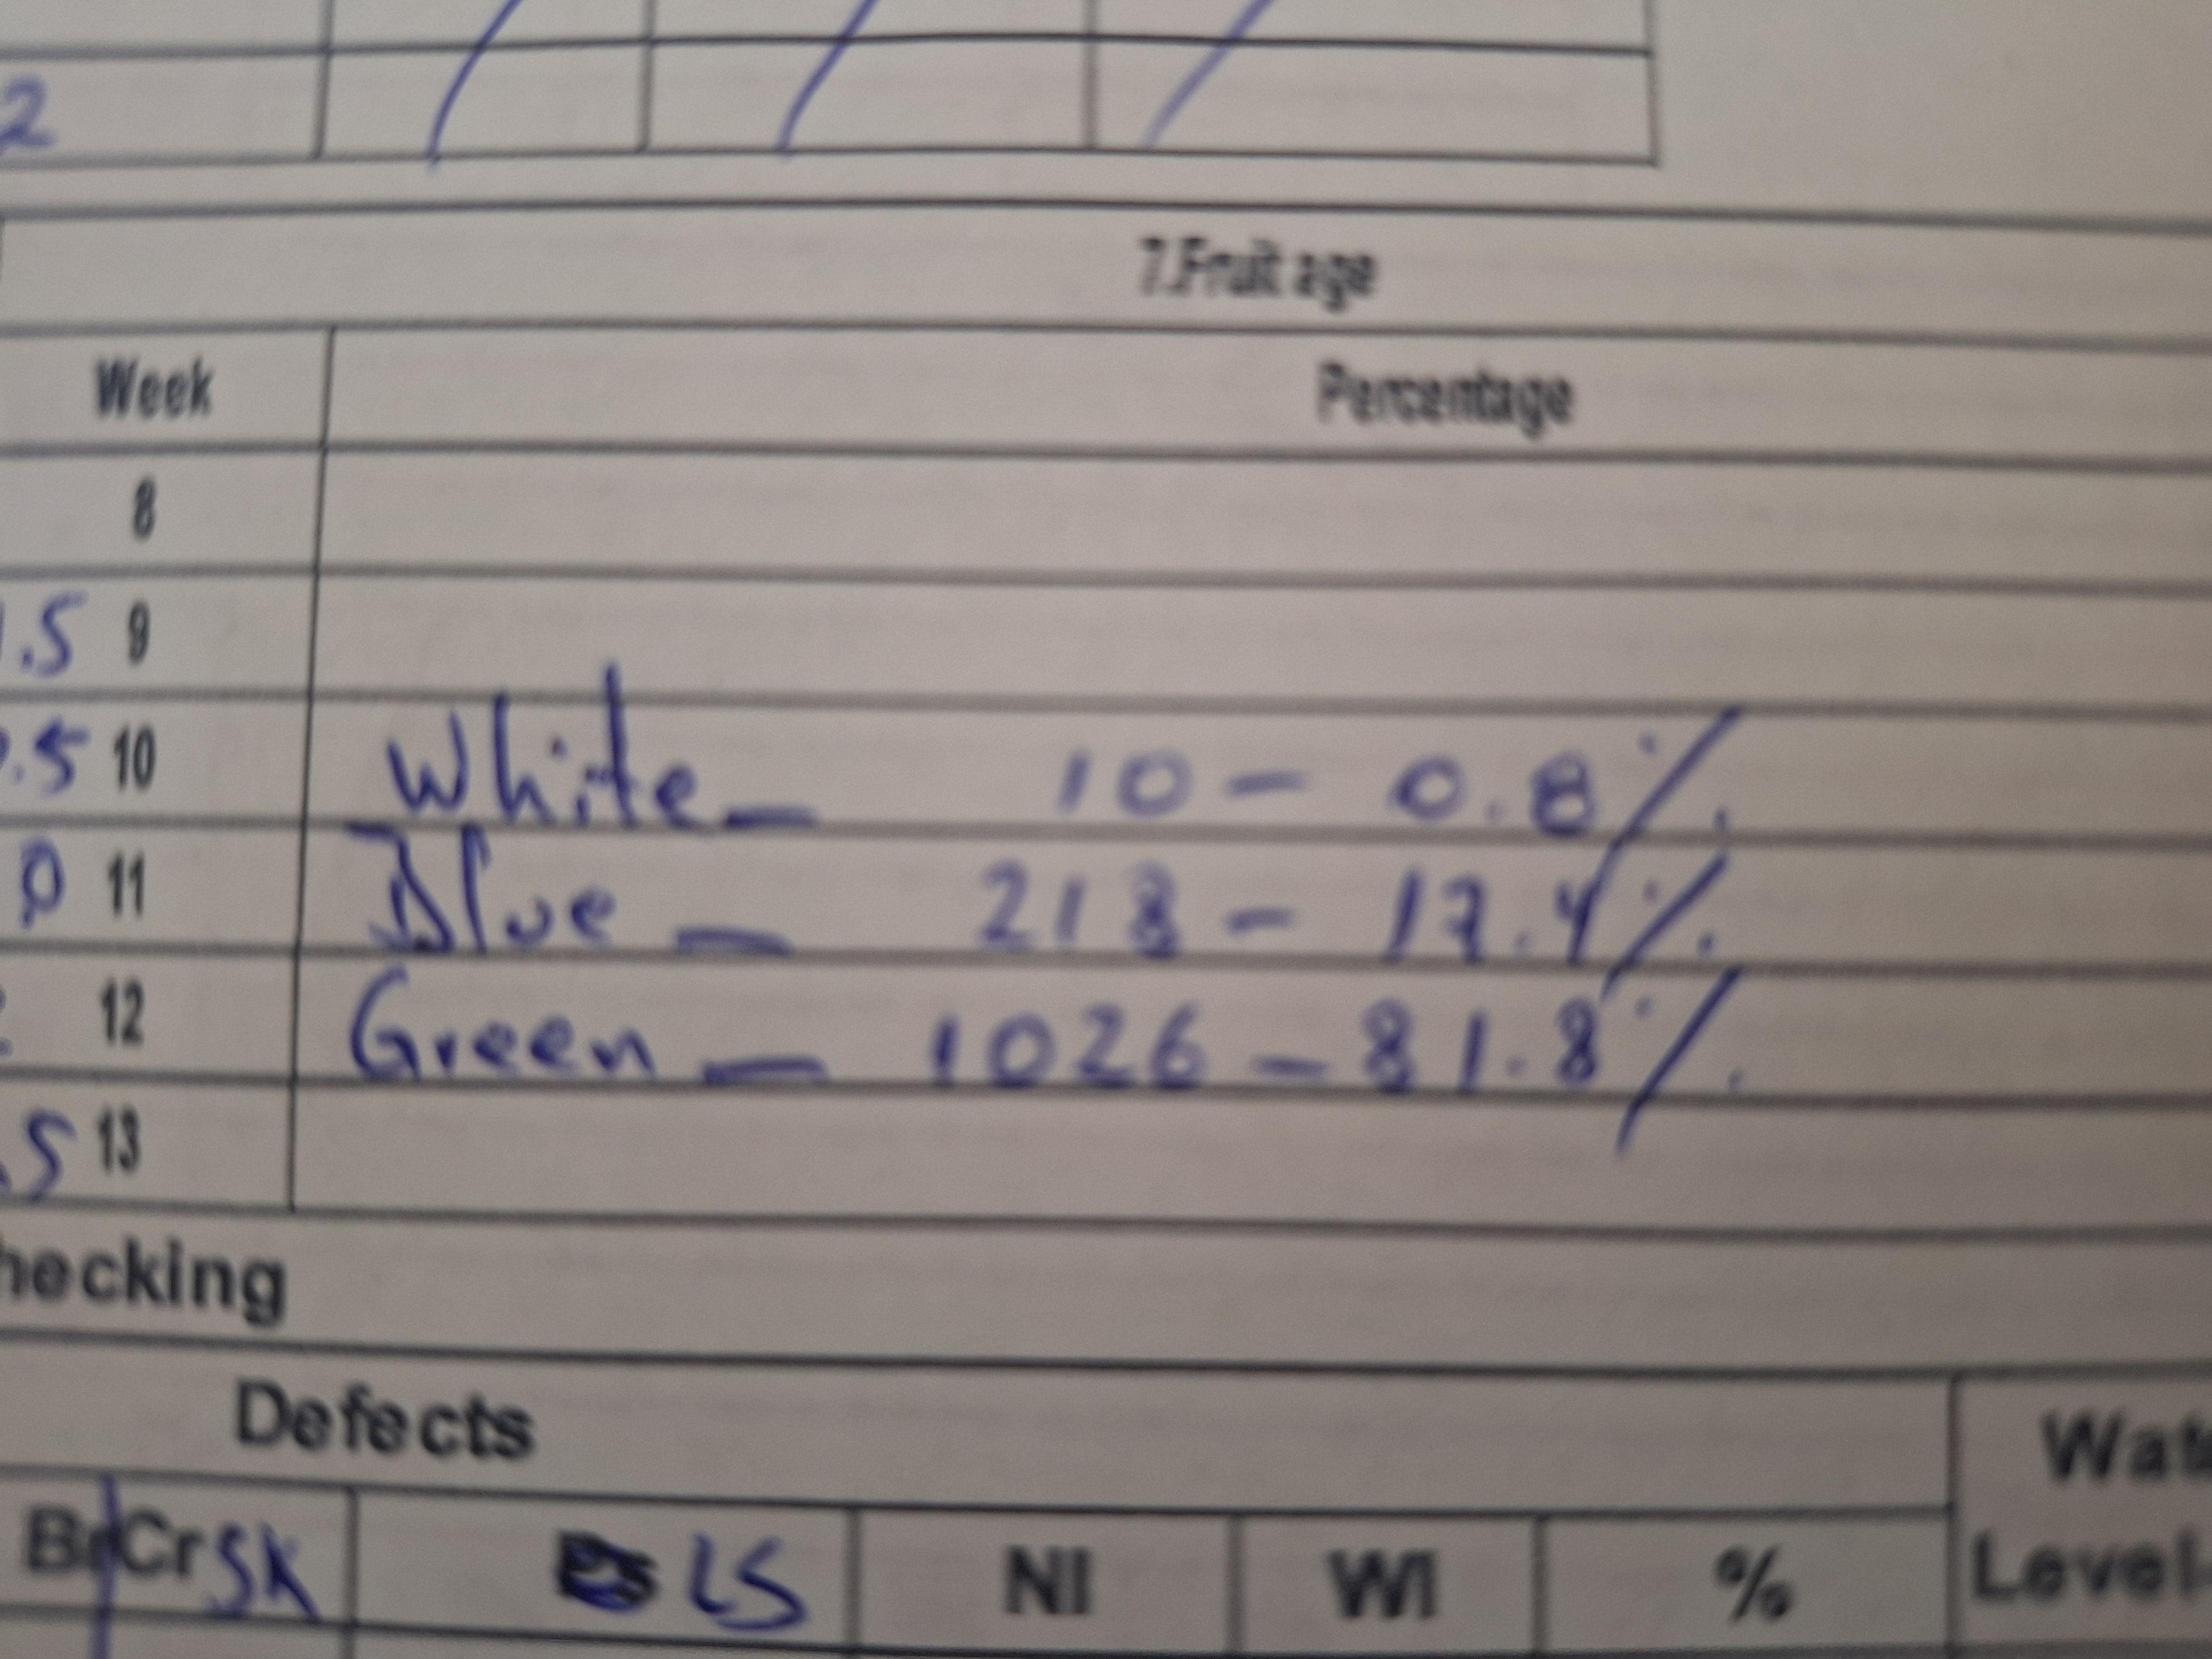 2
7.Fruit age
Week Percentage
8
.5 9
.5 10 White - 10 - 0.8%
0 11 Blue - 218 - 17.4%
12 Green - 1026 - 81.8%
.5 13
hecking
Defects Wat
BrCr SK LS NI WI % Level